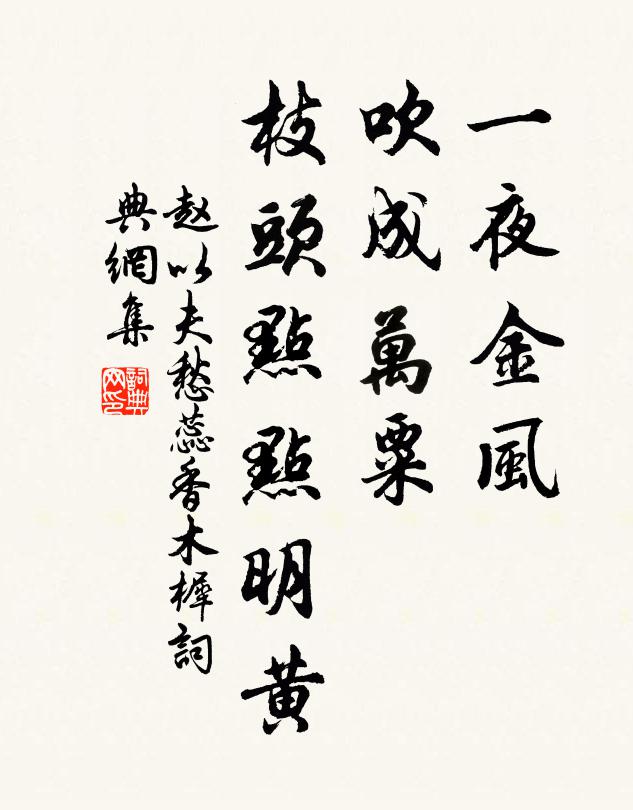 一夜金風
吹成萬粟
枝頭點點明黃
赵以夫愁蕊香木樨詞
典網集
詞典
网印